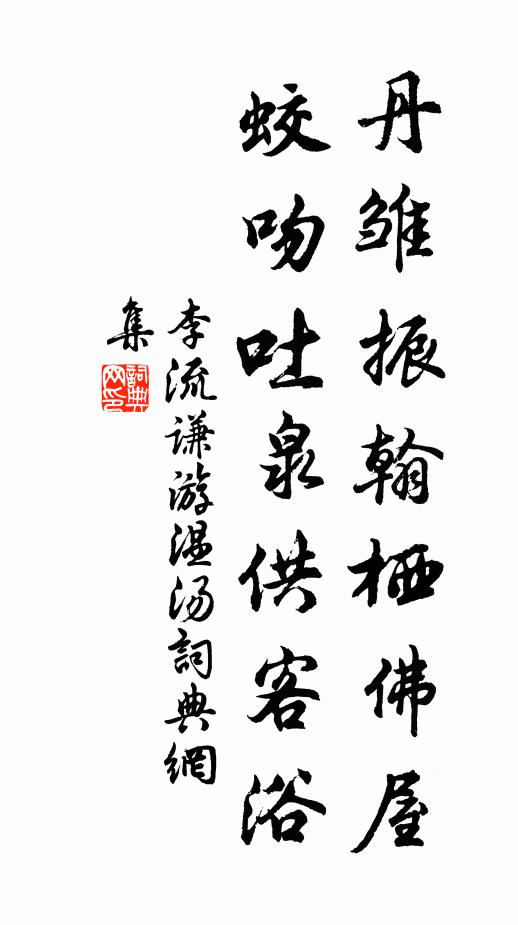 丹雏振翰栖佛屋
蛟吻吐泉供客浴
李流谦游温汤詞典網
集
詞典
网印